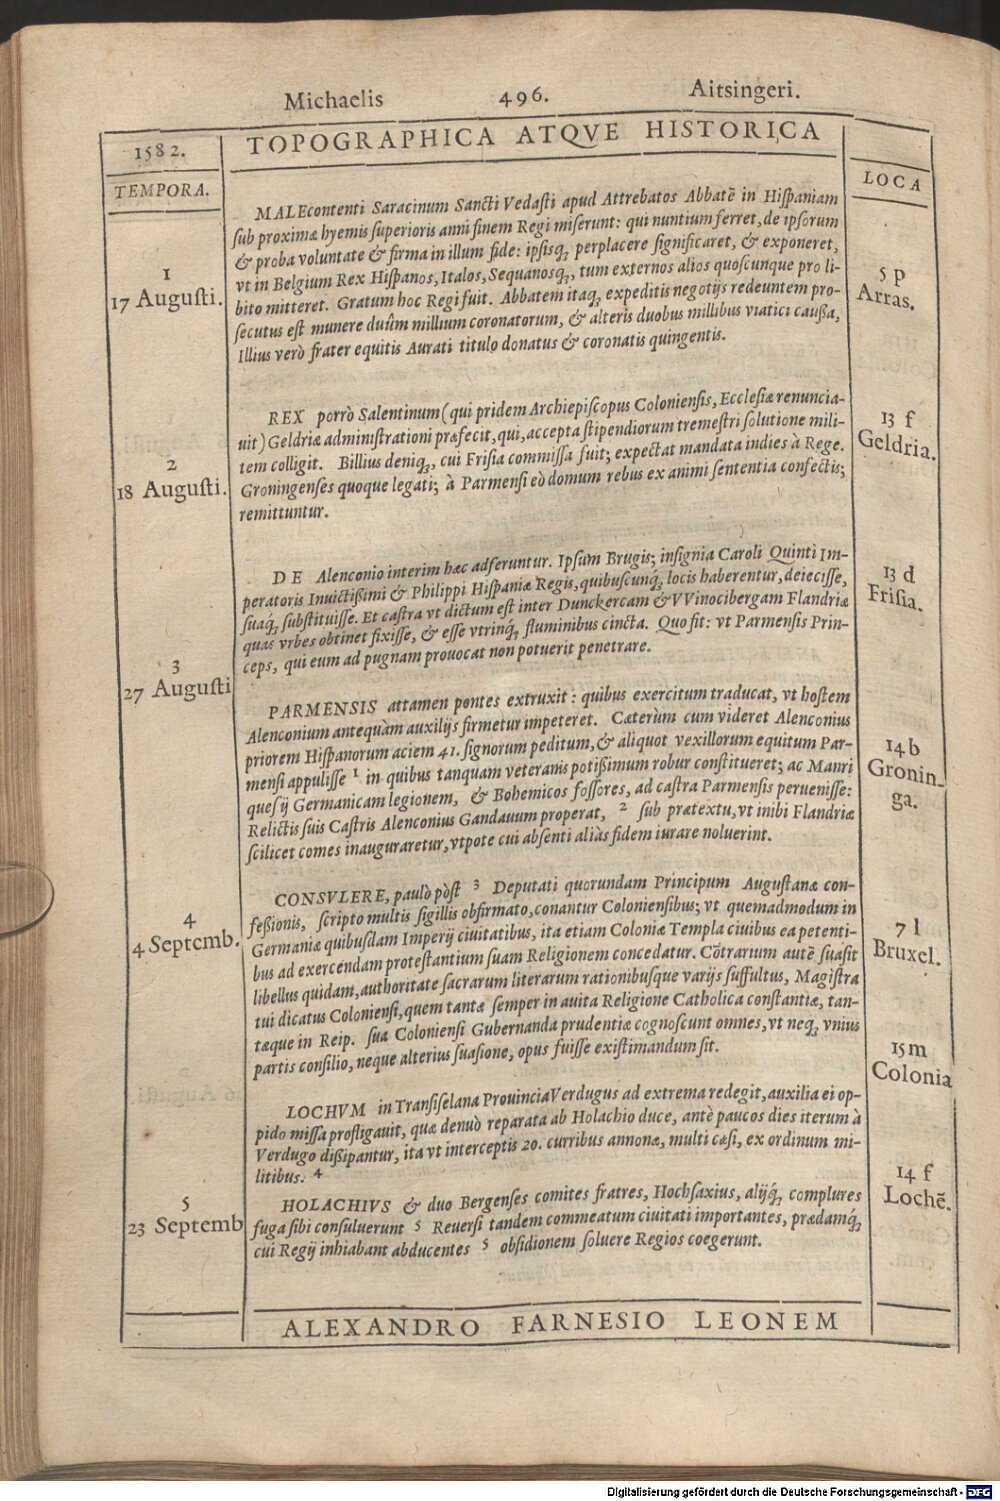 Michaelis 496. Aitsingeri.
1582.
TOPOGRAPHICA ATQVE HISTORICA
TEMPORA.
LOCA
MALEcontenti Saracinum Sancti Vedasti apud Attrebatos Abbatē in Hispaniam
sub proximæ hyemis superioris anni finem Regi miserunt: qui nuntium ferret, de ipsorum
& proba voluntate & firma in illum fide: ipsisq; perplacere significaret, & exponeret,
vt in Belgium Rex Hispanos, Italos, Sequanosq;, tum externos alios quoscunque pro li-
bito mitteret. Gratum hoc Regi fuit. Abbatem itaq; expeditis negotijs redeuntem pro-
secutus est munere duûm millium coronatorum, & alteris duobus millibus viatici caussa,
Illius verò frater equitis Aurati titulo donatus & coronatis quingentis.
1
17 Augusti.
5 p
Arras.
REX porrò Salentinum (qui pridem Archiepiscopus Coloniensis, Ecclesiæ renuncia-
uit) Geldriæ administrationi præfecit, qui, accepta stipendiorum tremestri solutione mili-
tem colligit. Billius deniq;, cui Frisia commissa fuit; expectat mandata indies à Rege.
Groningenses quoque legati; à Parmensi eò domum rebus ex animi sententia confectis;
remittuntur.
2
18 Augusti.
13 f
Geldria.
DE Alenconio interim hæc adferuntur. Ipsum Brugis; insignia Caroli Quinti Im-
peratoris Inuictißimi & Philippi Hispaniæ Regis, quibuscunq; locis haberentur, deiecisse,
suaq; substituisse. Et castra vt dictum est inter Dunckercam & VVinocibergam Flandriæ
quas vrbes obtinet fixisse, & esse vtrinq; fluminibus cincta. Quo fit: vt Parmensis Prin-
ceps, qui eum ad pugnam prouocat non potuerit penetrare.
3
27 Augusti
13 d
Frisia.
PARMENSIS attamen pontes extruxit: quibus exercitum traducat, vt hostem
Alenconium antequàm auxilijs firmetur impeteret. Cæterùm cum videret Alenconius
priorem Hispanorum aciem 41. signorum peditum, & aliquot vexillorum equitum Par-
mensi appulisse 1 in quibus tanquam veteranis potißimum robur constitueret; ac Manri
quesij Germanicam legionem, & Bohemicos fossores, ad castra Parmensis peruenisse:
Relictis suis Castris Alenconius Gandauum properat, 2 sub pratextu, vt inibi Flandriæ
scilicet comes inauguraretur, vtpote cui absenti aliàs fidem iurare noluerint.
14 b
Gronin-
ga.
CONSVLERE, paulò pòst 3 Deputati quorundam Principum Augustanæ con-
feßionis, scripto multis sigillis obfirmato, conantur Coloniensibus; vt quemadmodum in
Germaniæ quibusdam Imperij ciuitatibus, ita etiam Coloniæ Templa ciuibus ea petenti-
bus ad exercendam protestantium suam Religionem concedatur. Cōtrarium autē suasit
libellus quidam, authoritate sacrarum literarum rationibusque varijs suffultus, Magistra
tui dicatus Coloniensi, quem tantæ semper in auita Religione Catholica constantiæ, tan-
tæque in Reip. sua Coloniensi Gubernanda prudentiæ cognoscunt omnes, vt neq; vnius
partis consilio, neque alterius suasione, opus fuisse existimandum sit.
4
4 Septemb.
7 l
Bruxel.
15 m
Colonia
LOCHVM in Transiselana Prouincia Verdugus ad extrema redegit, auxilia ei op-
pido missa profligauit, quæ denuò reparata ab Holachio duce, antè paucos dies iterum à
Verdugo dißipantur, ita vt interceptis 20. curribus annonæ, multi cæsi, ex ordinum mi-
litibus. 4
HOLACHIVS & duo Bergenses comites fratres, Hochsaxius, alijq; complures
fuga sibi consuluerunt 5 Reuersi tandem commeatum ciuitati importantes, prædamq;
cui Regij inhiabant abducentes 5 obsidionem soluere Regios coegerunt.
5
23 Septemb
14 f
Lochē.
ALEXANDRO FARNESIO LEONEM
Digitalisierung gefördert durch die Deutsche Forschungsgemeinschaft - DFG